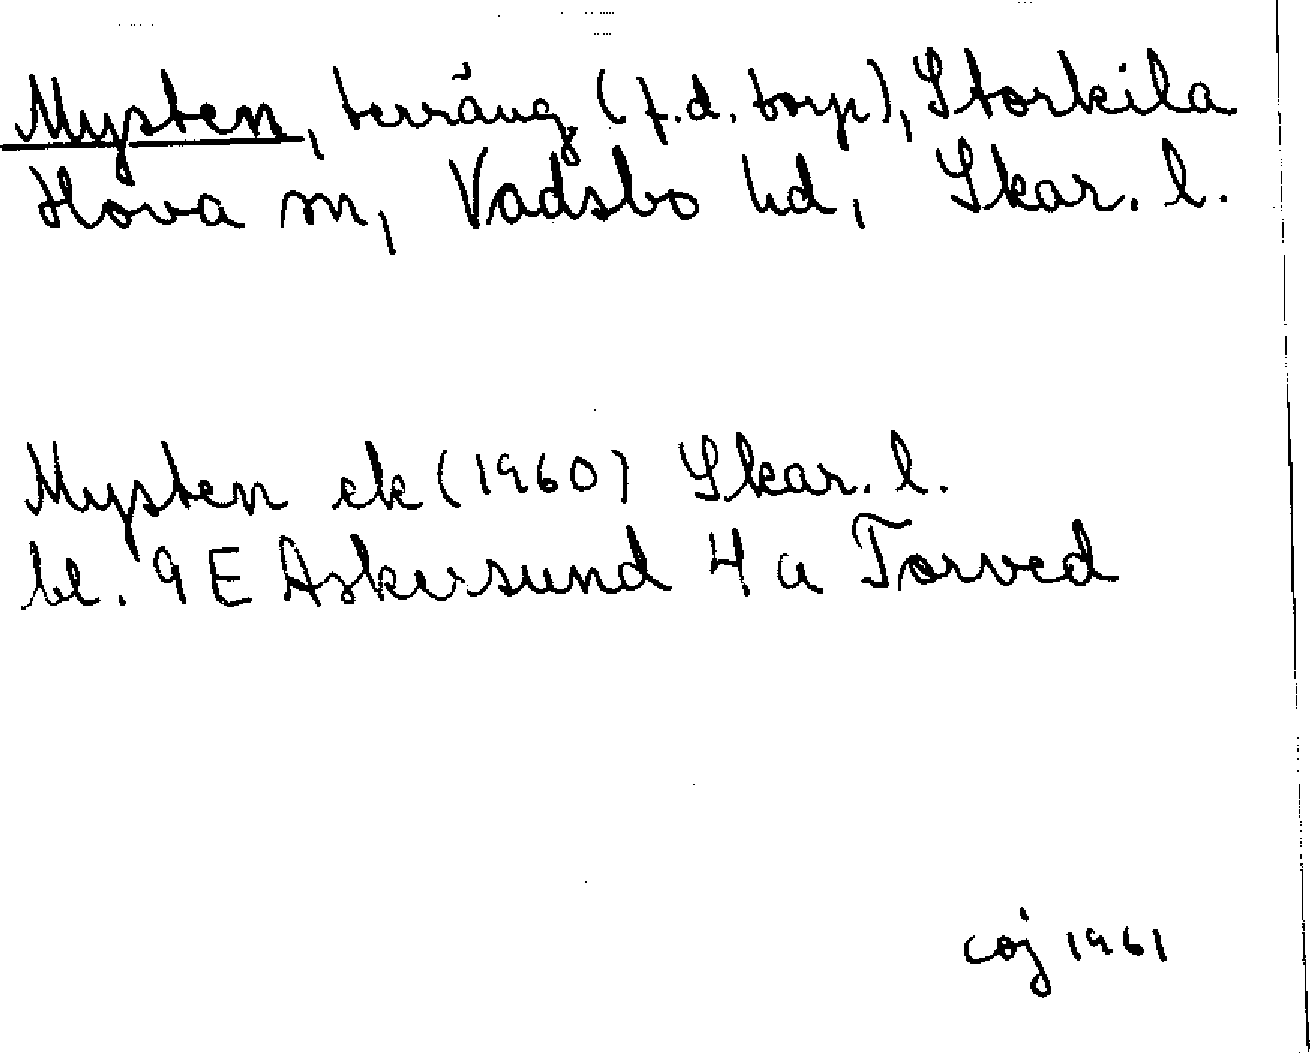 Mysten, terräng (f.d. torp), Storkila
Hova sn, Vadsbo hd, Skar. l.
Mysten ek (1960) Skar. l.
bl. 9 E Askersund 4 a Torved
coj 1961